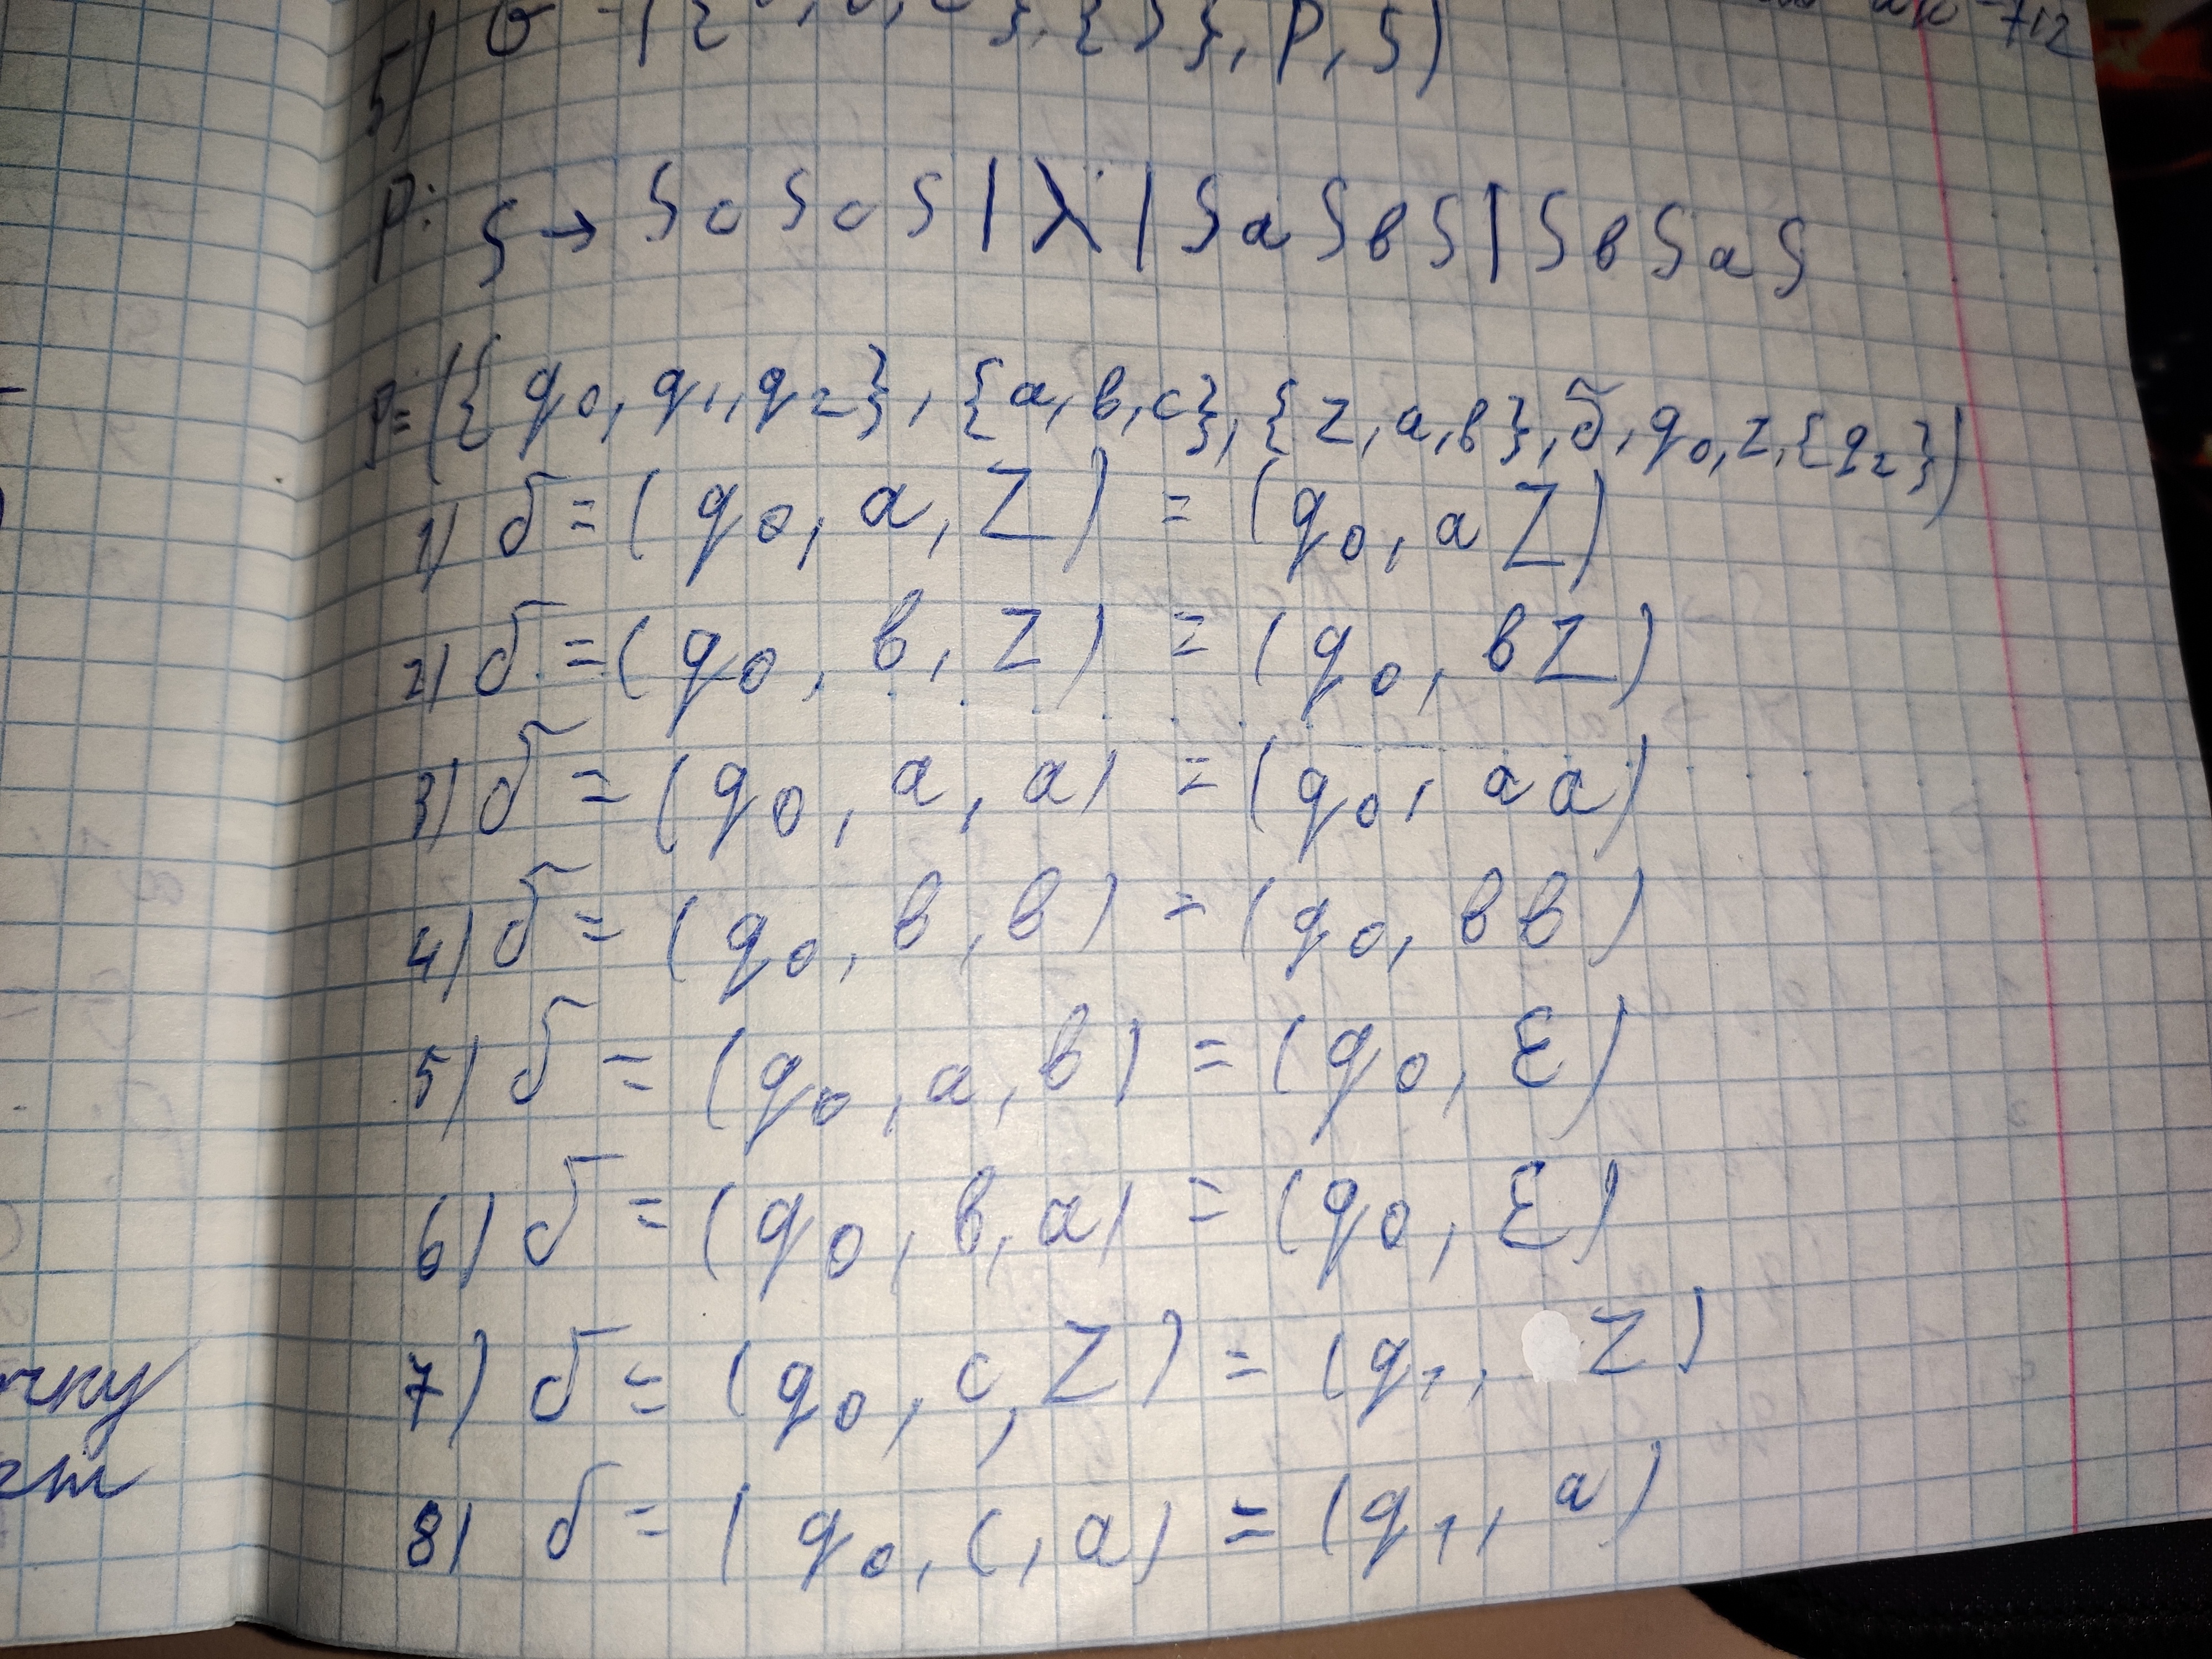 -712
5) G = ({ }, {S}, P, S)
P: S → ScScS | λ | SaSbS | SbSaS
P = ({q₀, q₁, q₂}, {a, b, c}, {z, a, b}, δ, q₀, z, {q₂})
1) δ = (q₀, a, Z) = (q₀, aZ)
2) δ = (q₀, b, Z) = (q₀, bZ)
3) δ = (q₀, a, a) = (q₀, aa)
4) δ = (q₀, b, b) = (q₀, bb)
5) δ = (q₀, a, b) = (q₀, ε)
6) δ = (q₀, b, a) = (q₀, ε)
7) δ = (q₀, c, Z) = (q₁, Z)
8) δ = (q₀, c, a) = (q₁, a)